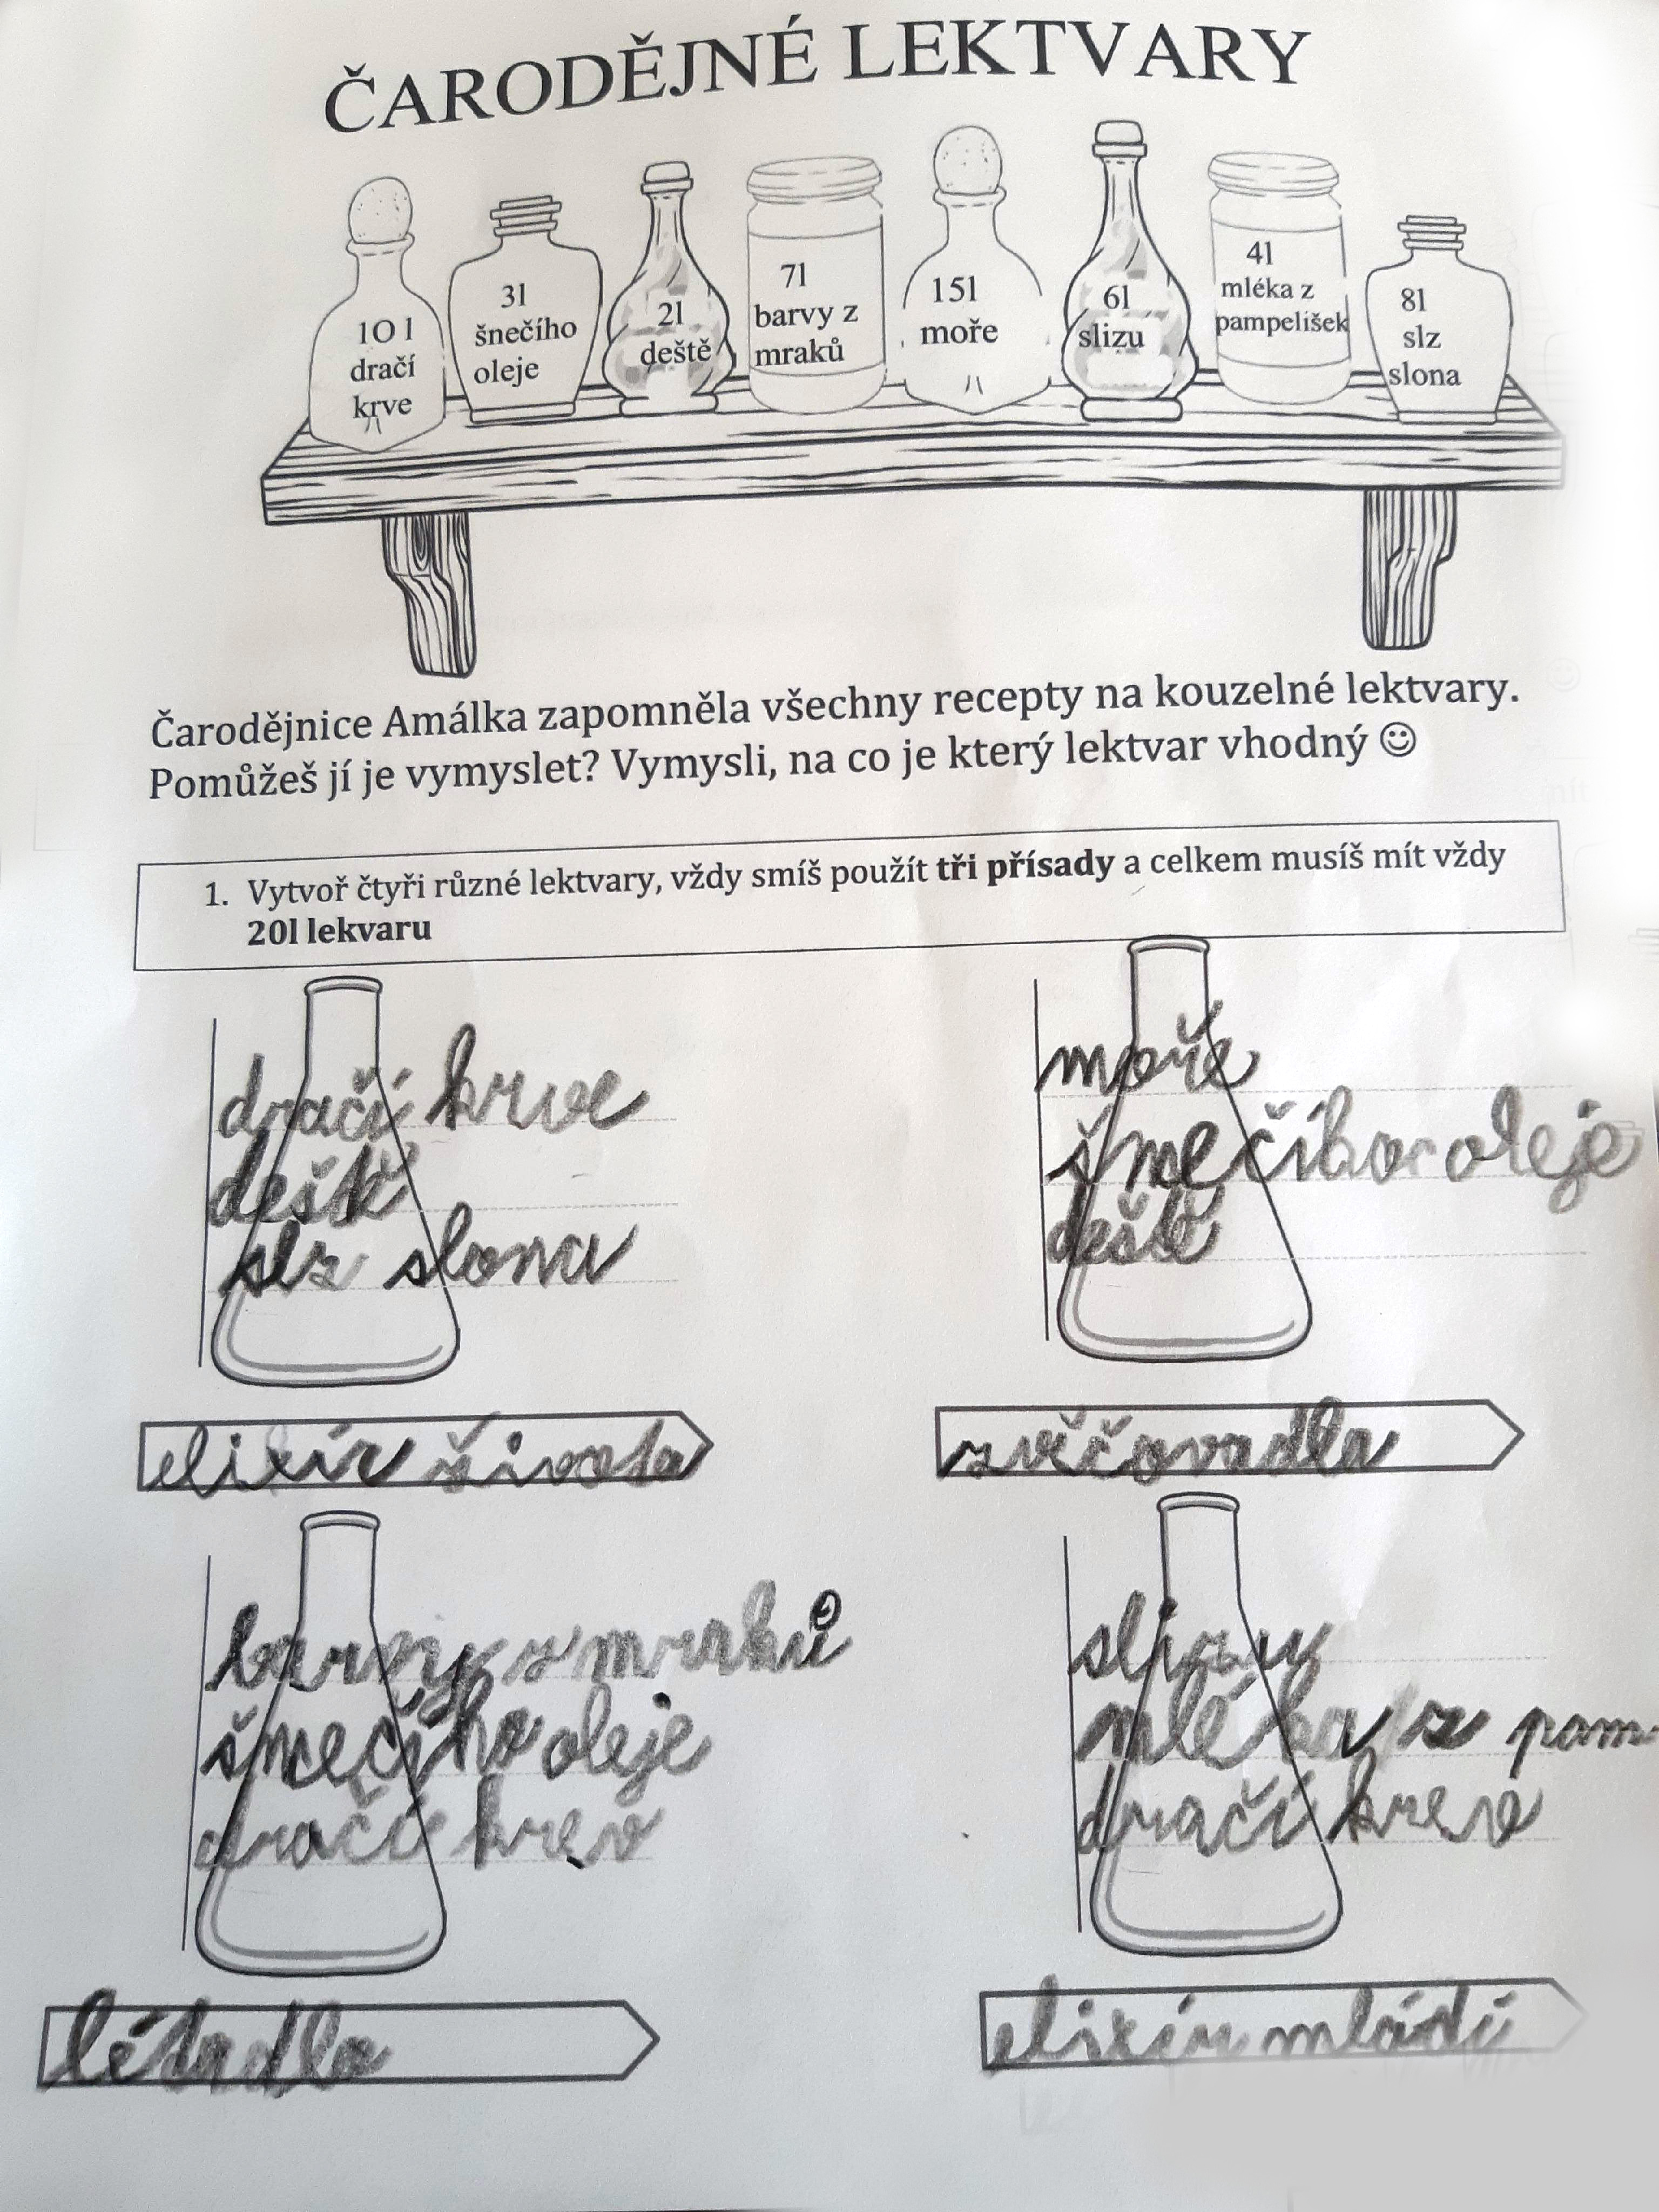 ČARODĚJNÉ LEKTVARY
10 l
dračí
krve
3l
šnečího
oleje
2l
deště
7l
barvy z
mraků
15l
moře
6l
slizu
4l
mléka z
pampelišek
8l
slz
slona
Čarodějnice Amálka zapomněla všechny recepty na kouzelné lektvary.
Pomůžeš jí je vymyslet? Vymysli, na co je který lektvar vhodný ☺
1. Vytvoř čtyři různé lektvary, vždy smíš použít tři přísady a celkem musíš mít vždy
20l lekvaru
dračí krve
dešť
slz slona
elixír života
moře
šnečího oleje
dešť
zvěčovadla
barvy z mraků
šnečího oleje
dračí krev
létadlo
slizu
mléka z pam
dračí krev
elixír mládí